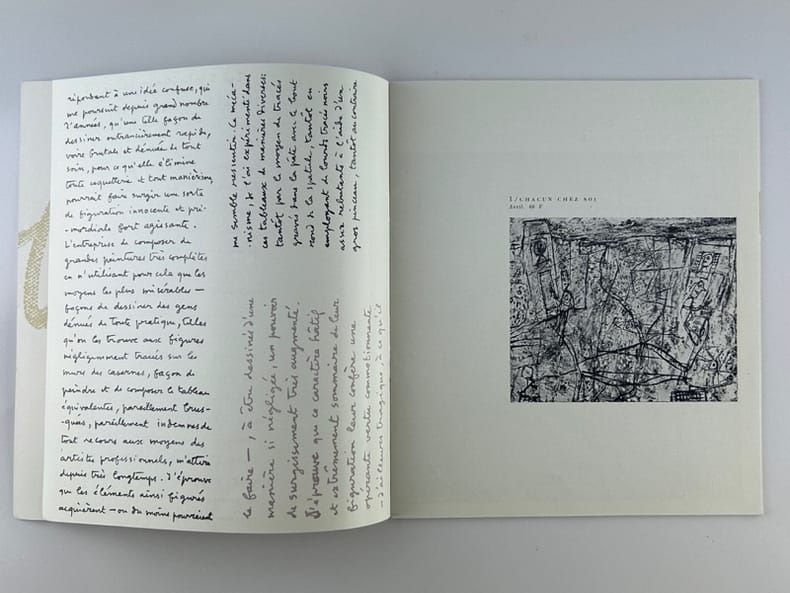 répondant à une idée confuse, qui
me poursuit depuis grand nombre
d'années, qu'une telle façon de
dessiner outrancièrement rapide,
voire brutale et dénuée de tout
soin, pour ce qu'elle élimine
toute coquetterie et tout maniérisme,
pourrait faire surgir une sorte
de figuration innocente et pri-
-mordiale fort agissante.
L'entreprise de composer de
grandes peintures très complètes
en n'utilisant pour cela que les
moyens les plus misérables —
façons de dessiner des gens
dénués de toute pratique, telles
qu'on les trouve aux figures
négligemment tracées sur les
murs des casernes, façon de
peindre et de composer le tableau
équivalentes, pareillement brus-
-quées, pareillement indemnes de
tout recours aux moyens des
artistes professionnels, m'attire
depuis très longtemps. J'éprouve
que les éléments ainsi figurés
acquièrent — ou du moins pourraient
le faire —, à être dessinés d'une
manière si négligée, un pouvoir
de surgissement très augmenté.
J'éprouve que ce caractère hâtif
et extrêmement sommaire de leur
figuration leur confère une
opérante vertu commotionnante
— d'ailleurs tragique, à ce qu'il
me semble ressentir. Ce méca-
-nisme, je l'ai expérimenté dans
ces tableaux de manières diverses:
tantôt par le moyen de tracés
gravés dans la pâte avec le bout
rond de la spatule, tantôt en
employant de lourds tracés noirs
assez rebutants à l'aide d'un
gros pinceau, tantôt au contraire
1 / CHACUN CHEZ SOI
Avril. 60 F